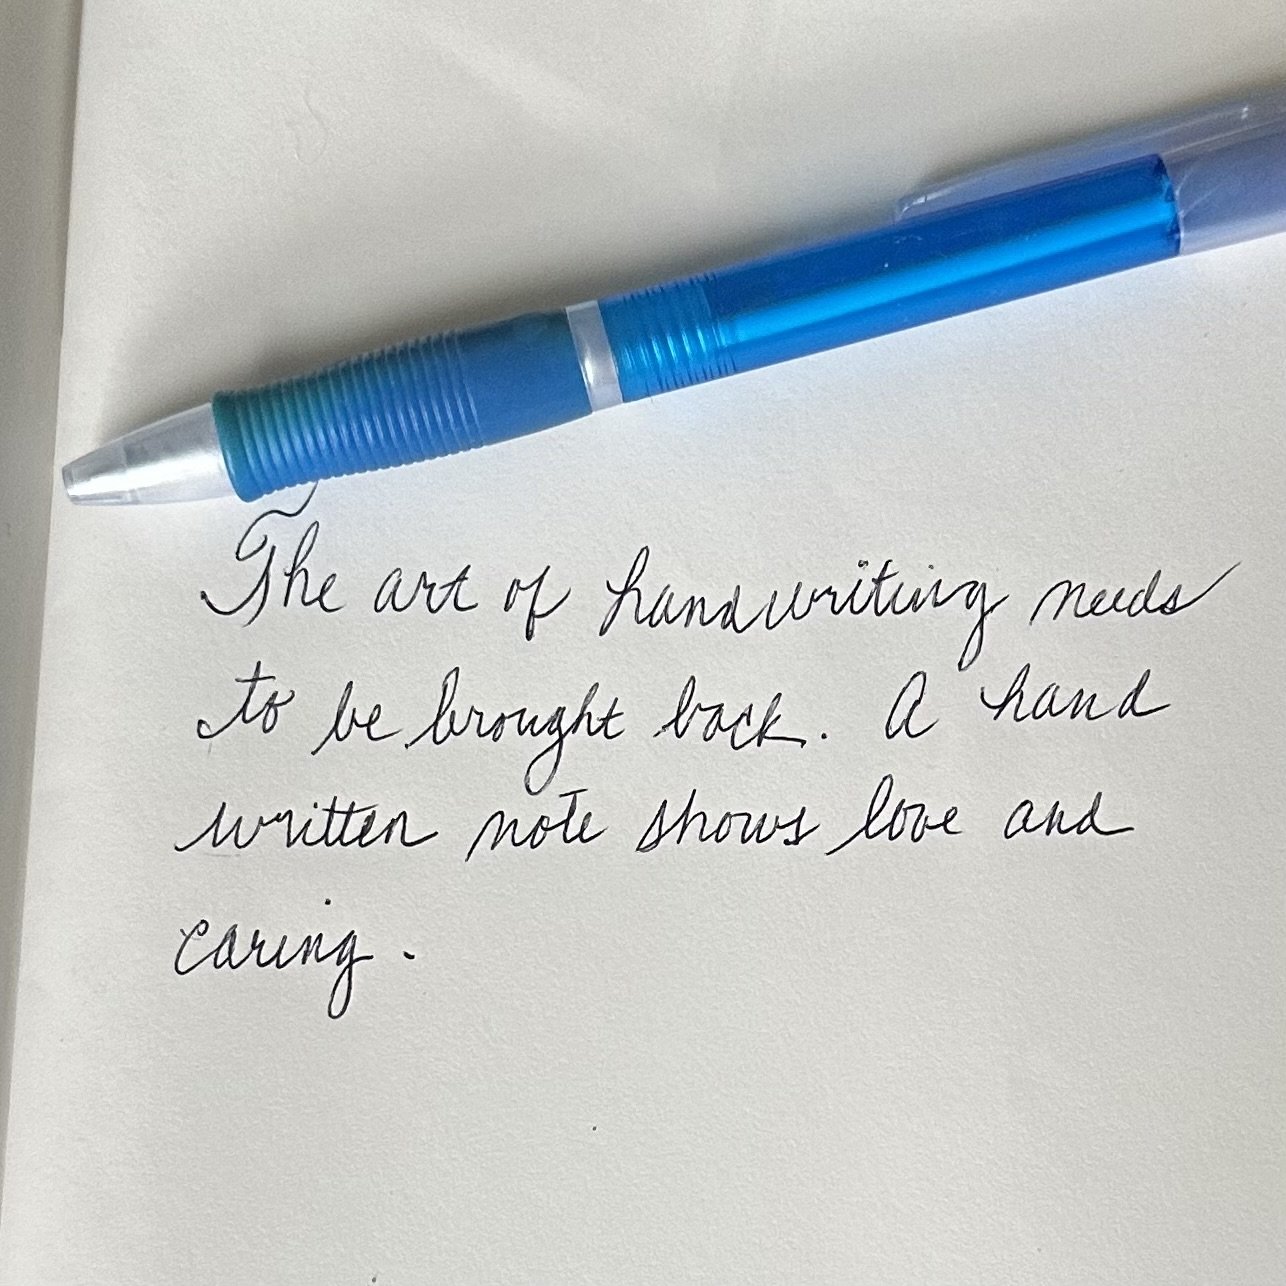 The art of handwriting needs
to be brought back. A hand
written note shows love and
caring.